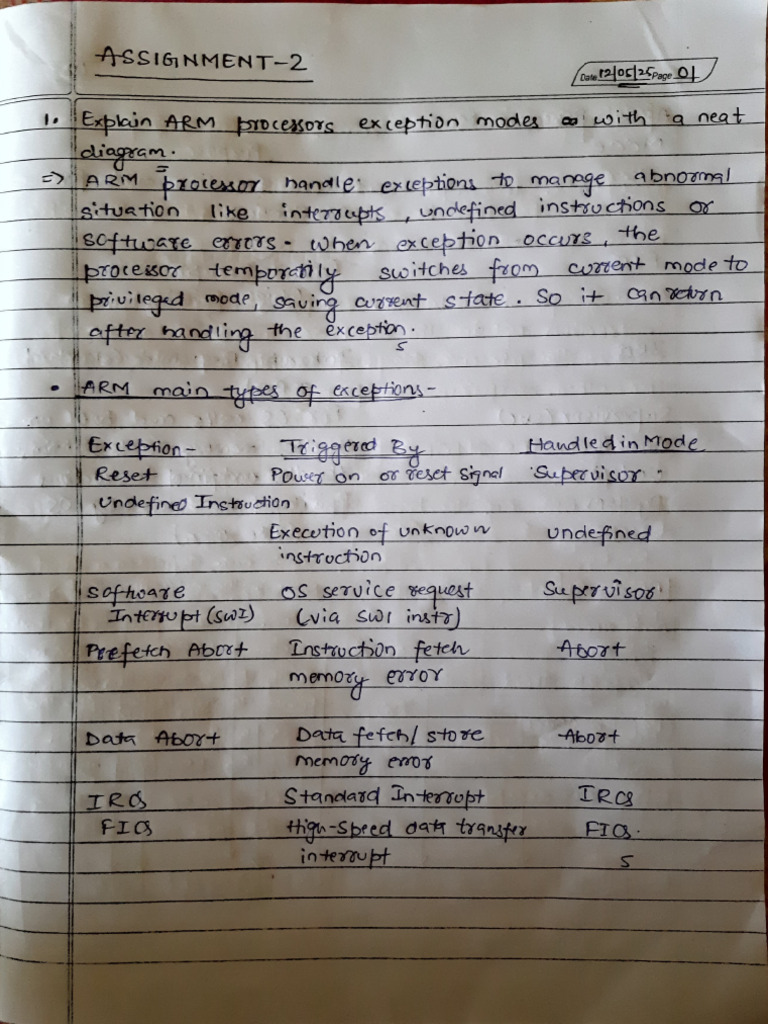 ASSIGNMENT-2
Date 12/05/25 Page 01
1. Explain ARM processors exception modes with a neat
diagram.
=> ARM processor handle exceptions to manage abnormal
situation like interrupts, undefined instructions or
software errors. When exception occurs, the
processor temporarily switches from current mode to
privileged mode, saving current state. So it can return
after handling the exception.
5
• ARM main types of exceptions-
Exception- Triggered By Handled in Mode
Reset Power on or reset signal Supervisor
Undefined Instruction
Execution of unknown undefined
instruction
Software OS service request Supervisor
Interrupt (SWI) (via SWI instr)
Prefetch Abort Instruction fetch Abort
memory error
Data Abort Data fetch/store Abort
memory error
IRQ Standard Interrupt IRQ
FIQ High-speed data transfer FIQ.
interrupt 5